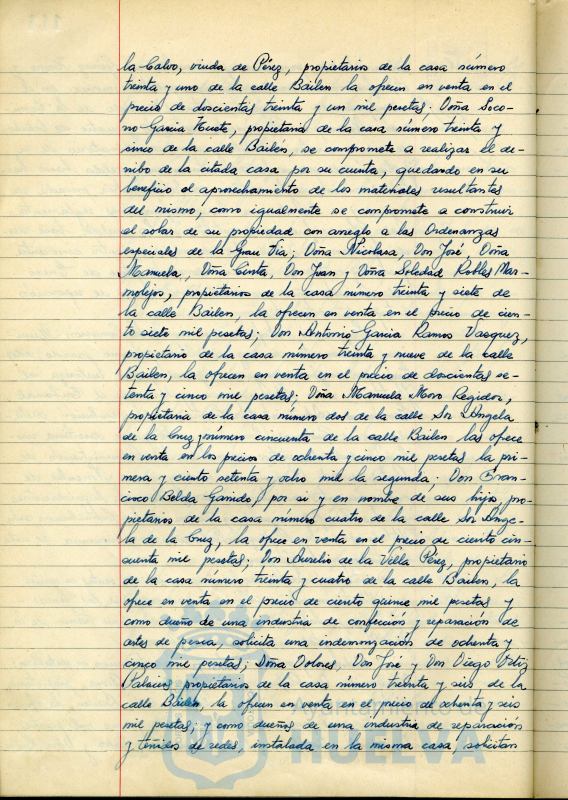 la Calvo, viuda de Pérez, propietarios de la casa número
treinta y uno de la calle Bailen la ofrecen en venta en el
precio de doscientas treinta y un mil pesetas; Doña Soco-
rro Garcia Huete, propietaria de la casa número treinta y
cinco de la calle Bailén, se compromete a realizar el de-
rribo de la citada casa por su cuenta, quedando en su
beneficio el aprovechamiento de los materiales resultantes
del mismo, como igualmente se compromete a construir
el solar de su propiedad con arreglo a las Ordenanzas
especiales de la Gran Via; Doña Nicolasa, Don José, Doña
Manuela, Doña Cinta, Don Juan y Doña Soledad Robles Mar-
molejos, propietarios de la casa número treinta y siete de
la calle Bailen, la ofrecen en venta en el precio de cien-
to siete mil pesetas; Don Antonio Garcia Ramos Vasquez,
propietario de la casa número treinta y nueve de la calle
Bailen, la ofrecen en venta en el precio de doscientas se-
tenta y cinco mil pesetas; Doña Manuela Moro Regidor,
propietaria de la casa número dos de la calle Sor Angela
de la Cruz y número cincuenta de la calle Bailen las ofrece
en venta en los precios de ochenta y cinco mil pesetas la pri-
mera y ciento setenta y ocho mil la segunda; Don Fran-
cisco Belda Garrido, por si y en nombre de sus hijos, pro-
pietarios de la casa número cuatro de la calle Sor Ange-
la de la Cruz, la ofrece en venta en el precio de ciento cin-
cuenta mil pesetas; Don Aurelio de la Villa Pérez, propietario
de la casa número treinta y cuatro de la calle Bailen, la
ofrece en venta en el precio de ciento quince mil pesetas y
como dueño de una industria de confección y reparación de
artes de pesca, solicita una indemnización de ochenta y
cinco mil pesetas; Doña Dolores, Don José y Don Diego Ortiz
Palacios, propietarios de la casa número treinta y seis de la
calle Bailen, la ofrecen en venta en el precio de ochenta y seis
mil pesetas, y como dueños de una industria de reparación
y teñidos de redes instalada en la misma casa, solicitan
HUELVA